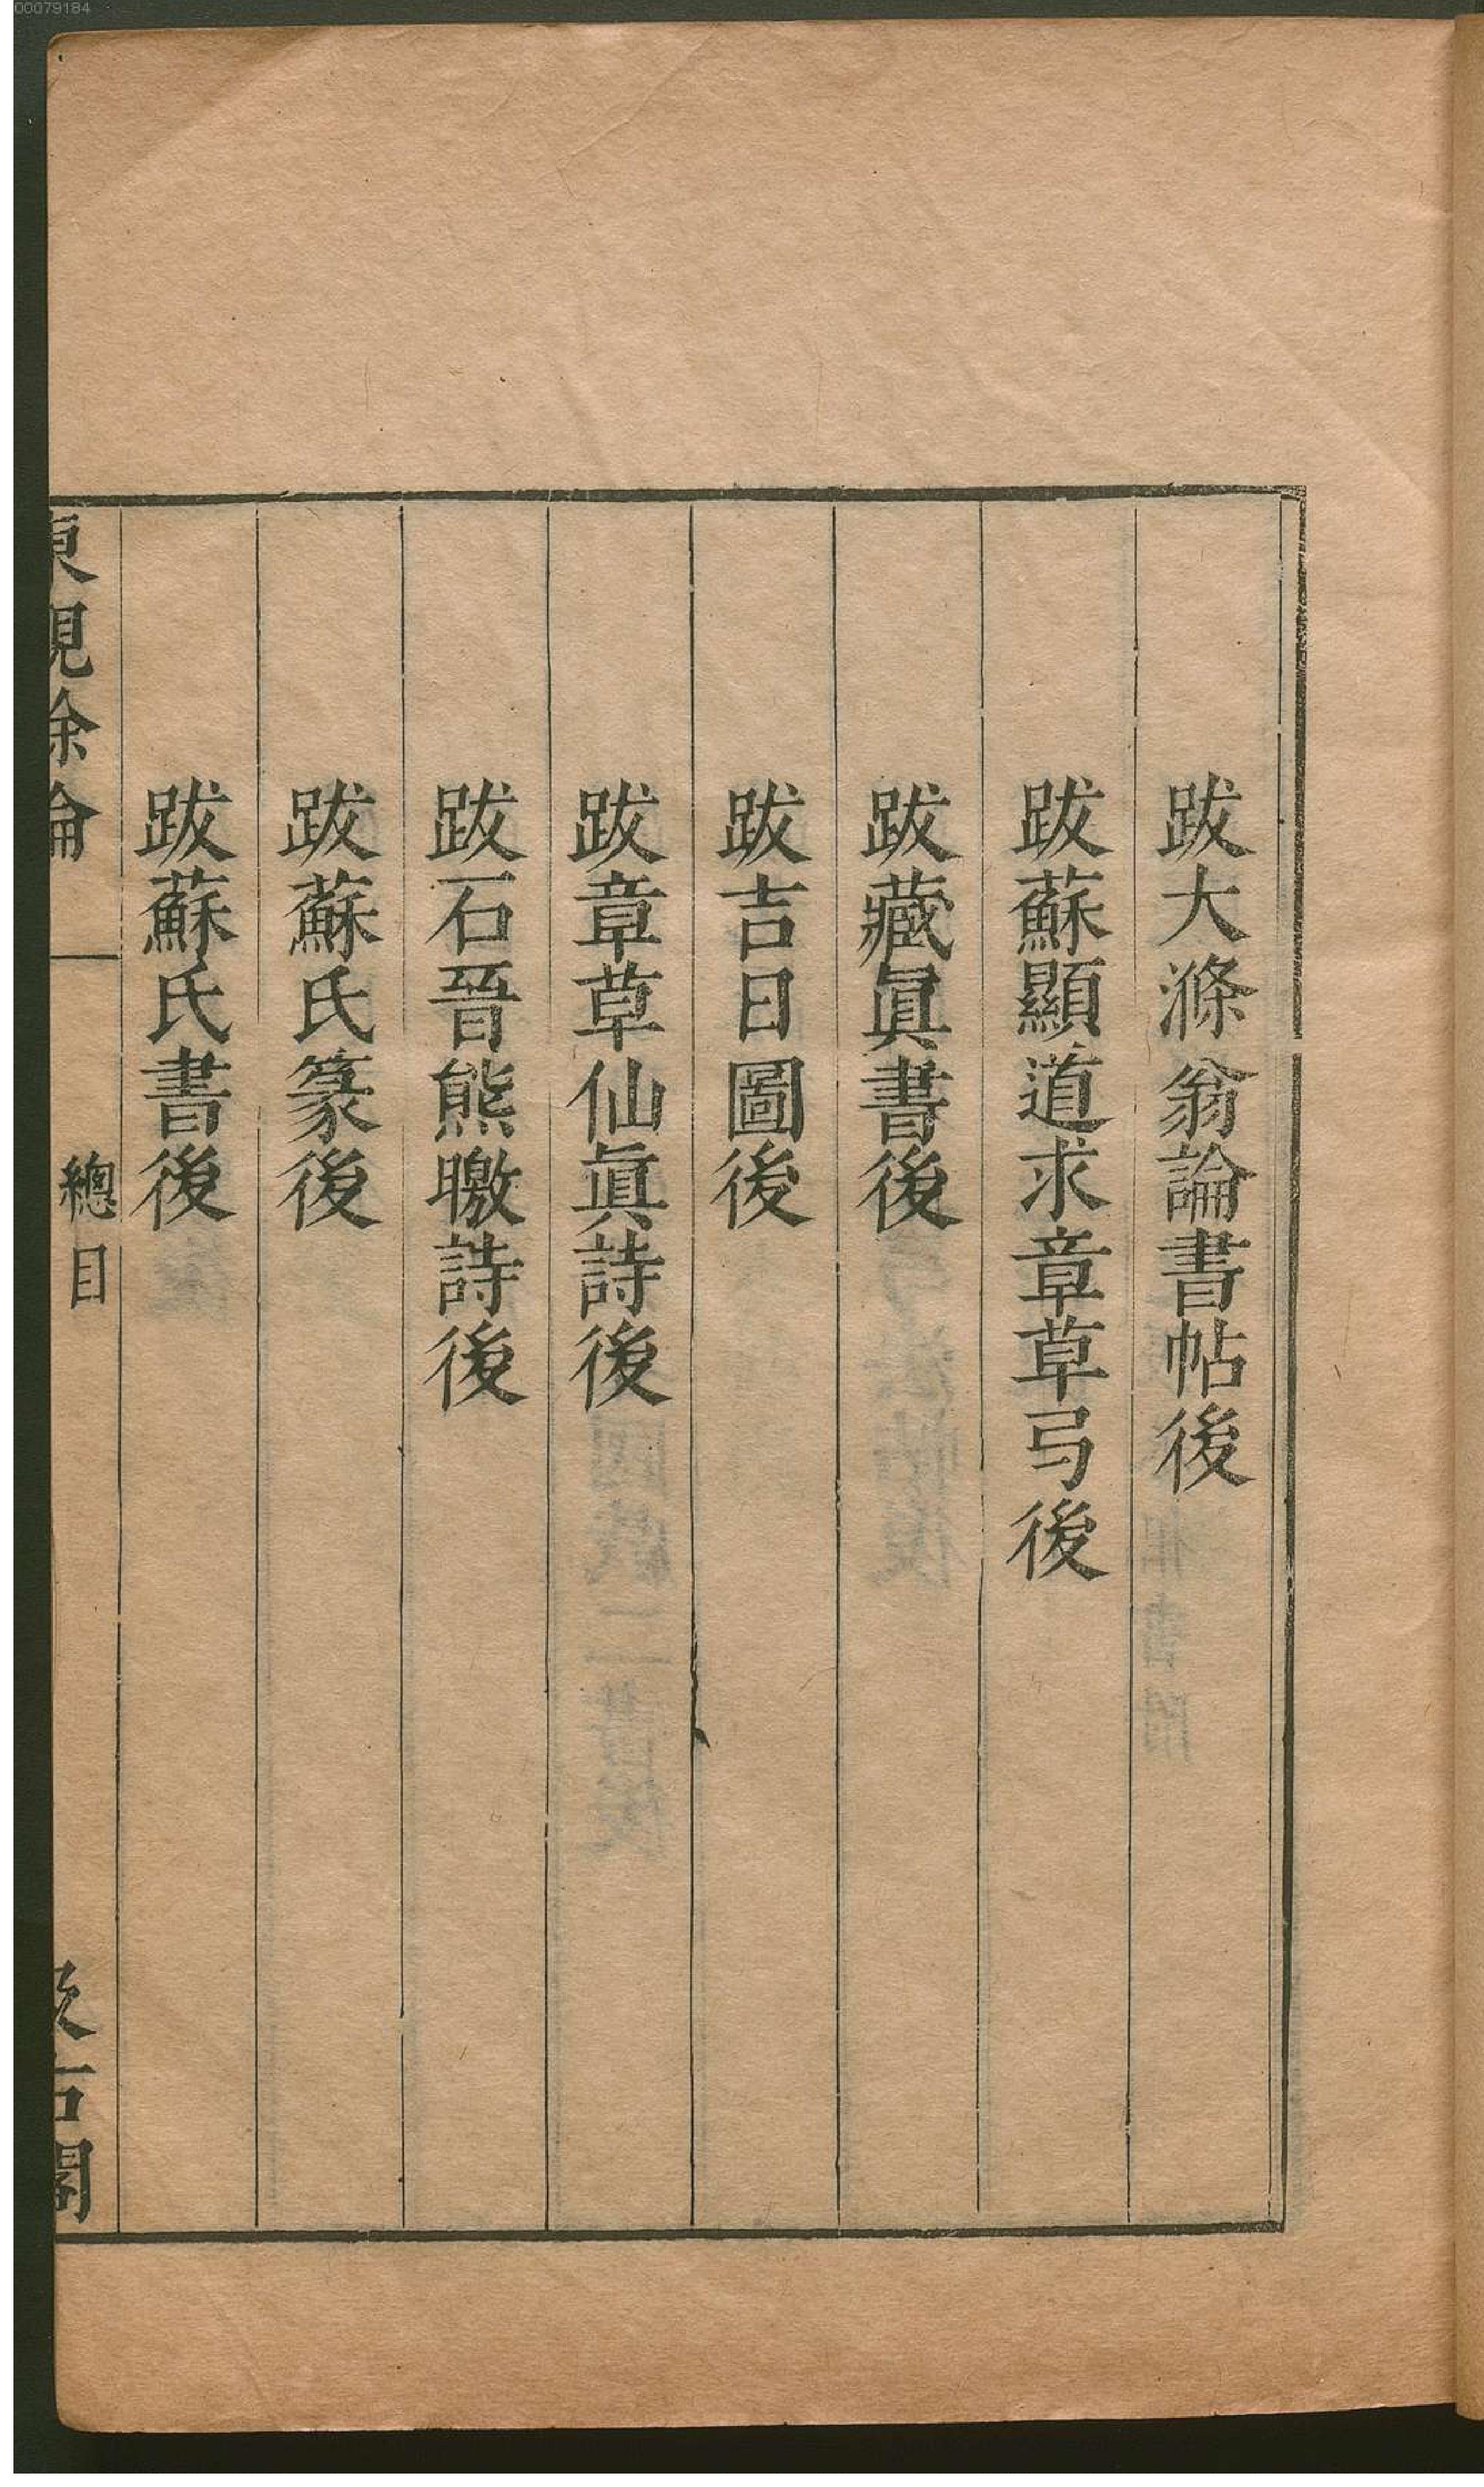 00079184
跋大滌翁論書帖後
跋蘇顯道求章草弓後
跋藏眞書後
跋吉日圖後
跋章草仙眞詩後
跋石晉熊皦詩後
跋蘇氏篆後
跋蘇氏書後
東觀餘論 總目 汲古閣